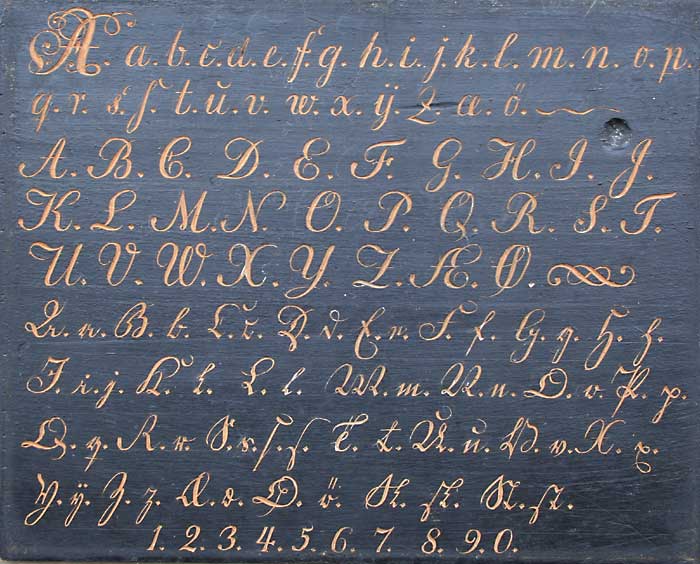 A. a. b. c. d. e. f. g. h. i. j. k. l. m. n. o. p.
q. r. s. ſ. t. u. v. w. x. ÿ. z. æ. ö.
A. B. C. D. E. F. G. H. I. J.
K. L. M. N. O. P. Q. R. S. T.
U. V. W. X. Y. Z. Æ. Ø.
A. a. B. b. C. c. D. d. E. e. F. f. G. g. H. h.
I. i. j. K. k. L. l. M. m. N. n. O. o. P. p.
Q. q. R. r. S. s. ſ. ſ. T. t. U. u. V. v. X. x.
Y. ÿ. Z. z. Æ. æ. Ø. ö. Sk. ſk. St. ſt.
1. 2. 3. 4. 5. 6. 7. 8. 9. 0.